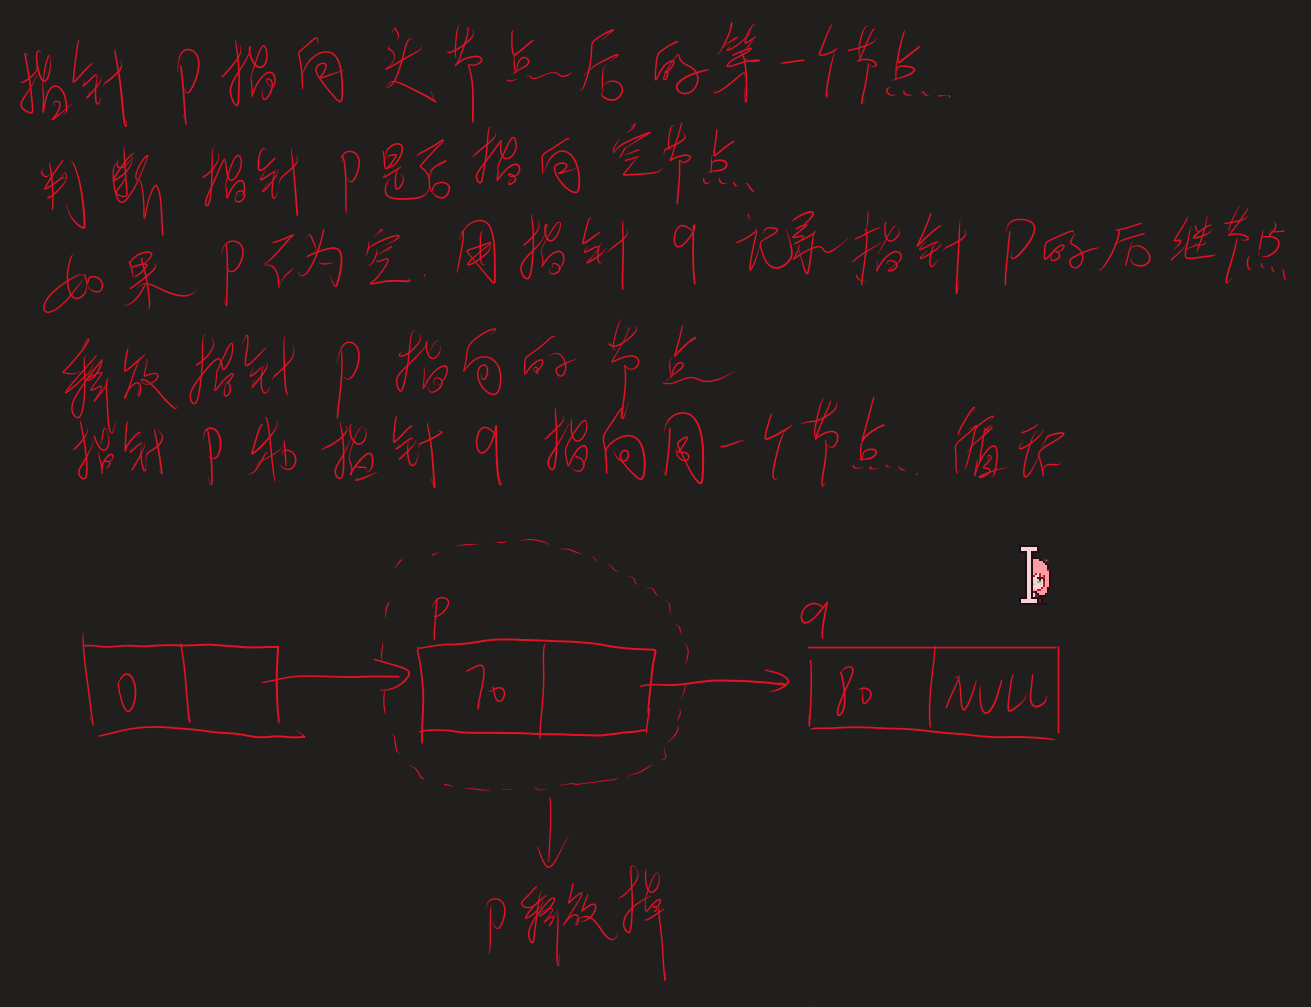 指针 p 指向 头节点后的第一个节点
判断 指针 p是否 指向 空节点
如果 p 不为空. 用指针 q 记录指针 p的后继节点
释放指针 p 指向的节点
指针 p和 指针 q 指向同一个节点. 循环
p
q
0
70
80
NULL
p释放掉